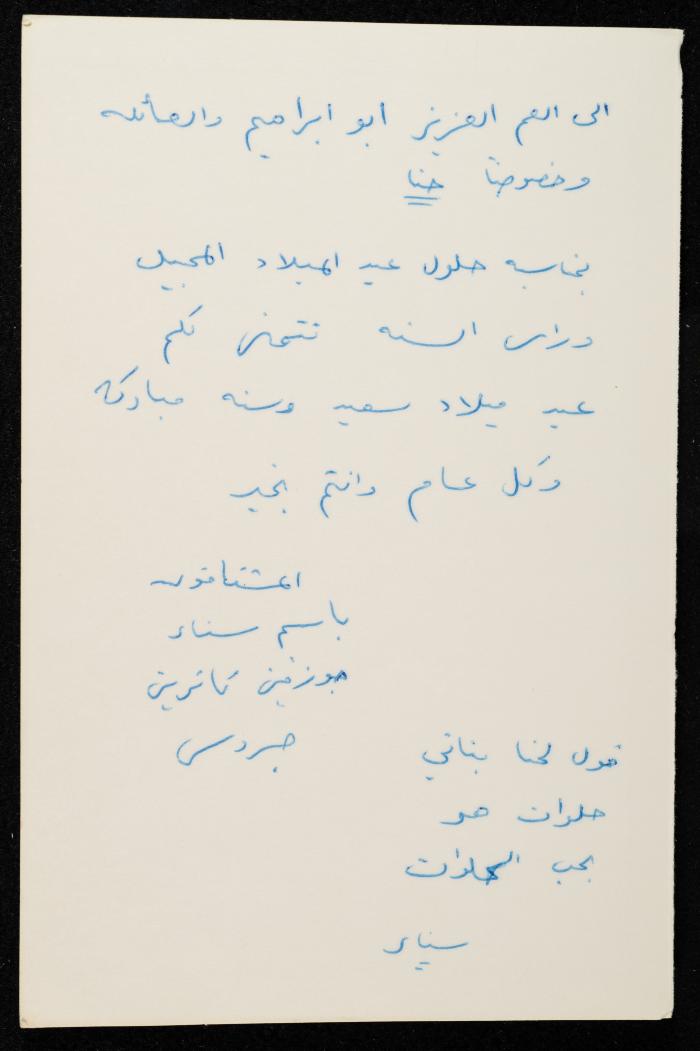 الى العم العزيز ابو ابراهيم والعائله
وخصوصاً حنا
بمناسبه حلول عيد الميلاد المجيد
وراس السنه نتمنى لكم
عيد ميلاد سعيد وسنه مباركه
وكل عام وانتم بخير
المشتاقون
باسم سناء
جوزفين كاترين
قول لحنا بناتي
حلوات هو
بحب الحلوات
سناء